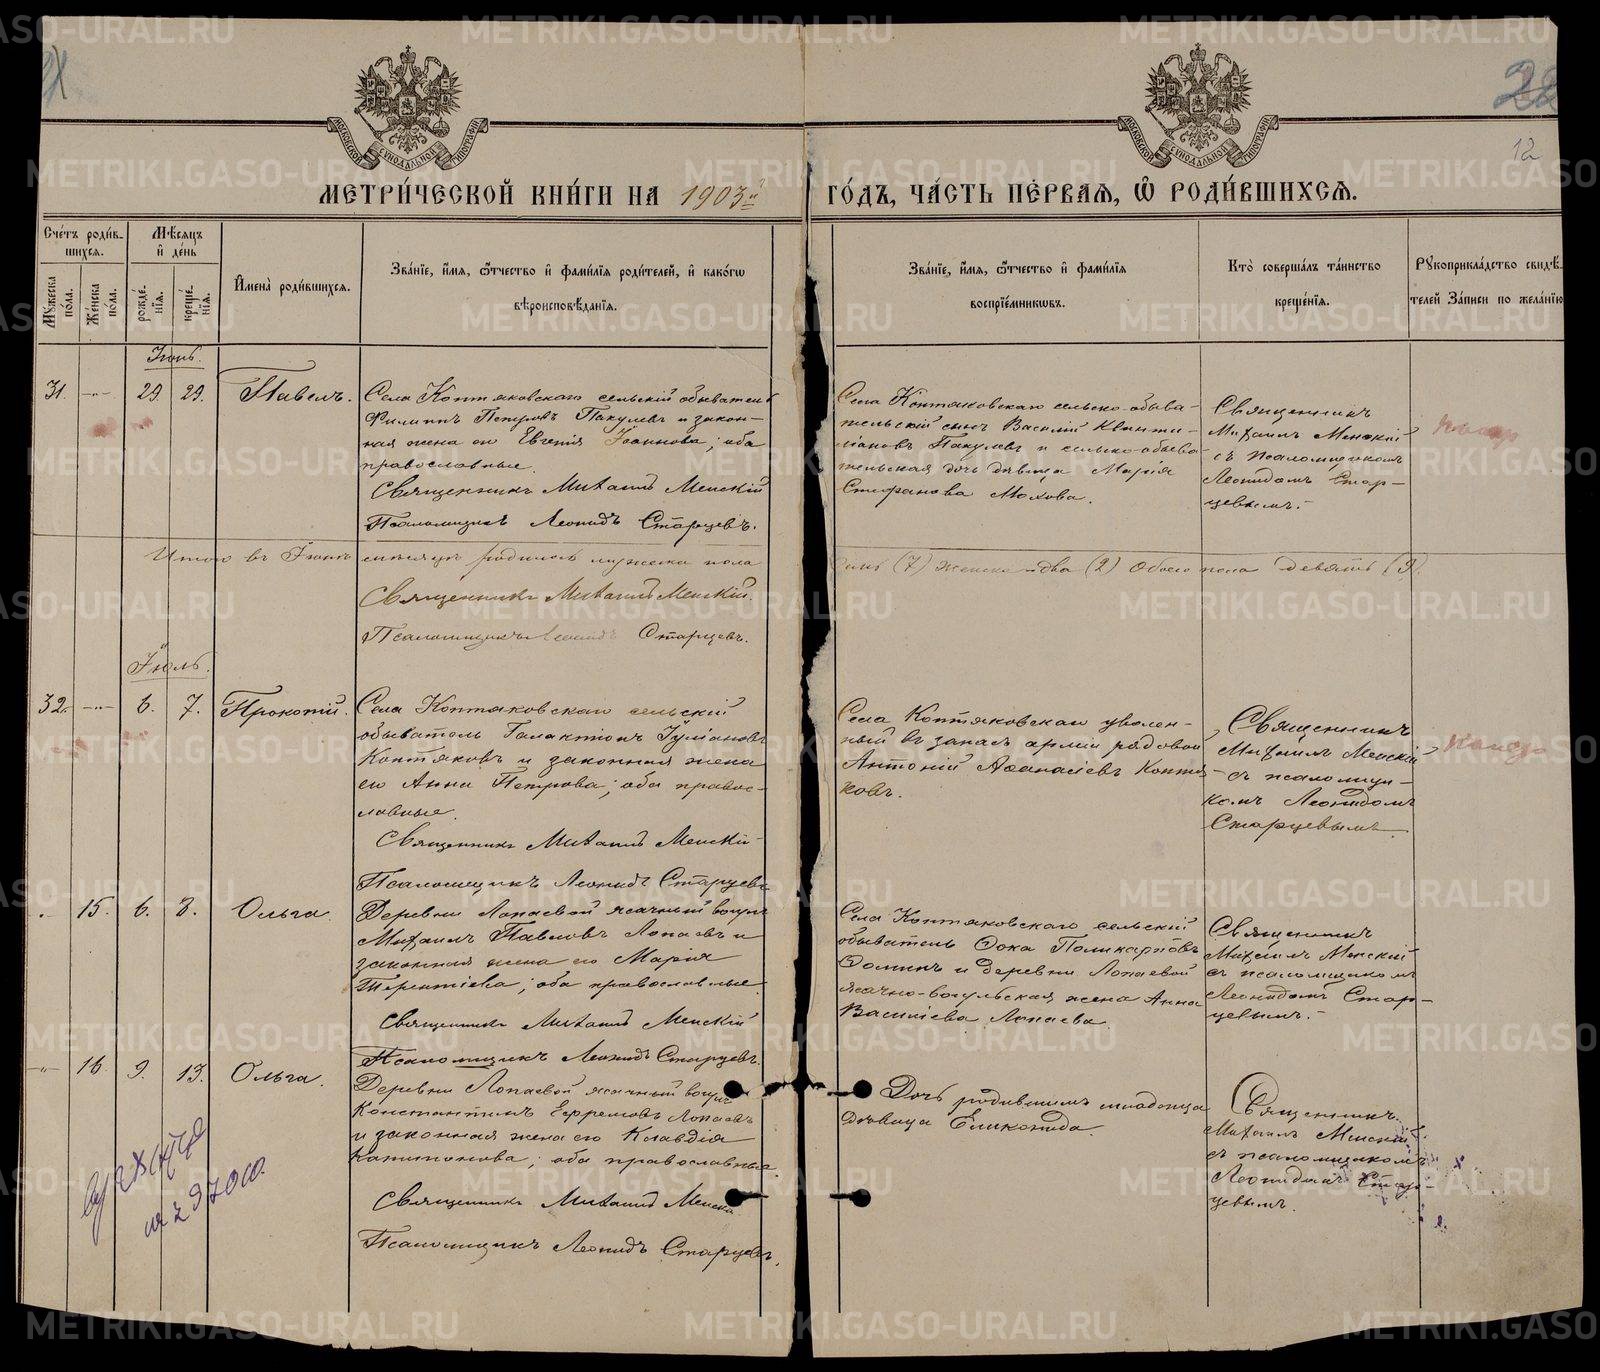 22
12
МОСКОВСКОЙ СѴНОДАЛЬНОЙ ТИПОГРАФІИ
МОСКОВСКОЙ СѴНОДАЛЬНОЙ ТИПОГРАФІИ
МЕТРИ́ЧЕСКОЙ КНИ́ГИ НА 1903й ГО́ДЪ, ЧА́СТЬ ПЕ́РВАѦ, Ѡ РОДИ́ВШИХСѦ.
Сче́тъ роди́в-
шихсѧ.
Мꙋжеска по́ла.
Же́нска по́ла.
Мѣ́сѧцъ
и҆ де́нь
рожде́-
нїѧ.
креще́-
нїѧ.
И҆мена̀ роди́вшихсѧ.
Зва́нїе, и҆́мѧ, ѻ҆́тчество и҆ фами́лїѧ роди́телей, и҆ како́гѡ
вѣроисповѣ́данїѧ.
Зва́нїе, и҆́мѧ, ѻ҆́тчество и҆ фами́лїѧ
воспрїе́мникѡвъ.
Кто̀ соверша́лъ та́инство
креще́нїѧ.
Рꙋкоприкла́дство свидѣ́-
телей За́писи по жела́нїю
Іюнь.
31. 29. 29. Павелъ.
Села Коптяковскаго сельскій обыватель
Филиппъ Петровъ Пакулевъ и закон-
ная жена его Евгенія Іоаннова; оба
православные.
Священникъ Михаилъ Менскій
Псаломщикъ Леонидъ Старцевъ.
Села Коптяковскаго сельско-обыва-
тельскій сынъ Василій Квинти-
ліановъ Пакулевъ и сельско-обыва-
тельская дочь дѣвица Марія
Стефанова Мохова.
Священникъ
Михаилъ Менскій
съ псаломщикомъ
Леонидомъ Стар-
цевымъ.
Итого въ Іюнѣ мѣсяцѣ родилось мужеска пола семь (7) женска два (2) обоего пола девять (9).
Священникъ Михаилъ Менскій.
Псаломщикъ Леонидъ Старцевъ.
Іюль.
32. 6. 7. Прокопій.
Села Коптяковскаго сельскій
обыватель Галактіонъ Іуліановъ
Коптяковъ и законная жена
его Анна Петрова; оба правос-
лавные.
Священникъ Михаилъ Менскій
Псаломщикъ Леонидъ Старцевъ
Села Коптяковскаго уволен-
ный въ запасъ арміи рядовой
Антоній Аѳанасіевъ Коптя-
ковъ.
Священникъ
Михаилъ Менскій
съ псаломщи-
комъ Леонидомъ
Старцевымъ.
15. 6. 8. Ольга.
Деревни Лопаевой ясачный вогулъ
Михаилъ Павловъ Лопаевъ и
законная жена его Марія
Терентіева; оба православные.
Священникъ Михаилъ Менскій
Псаломщикъ Леонидъ Старцевъ.
Села Коптяковскаго сельскій
обыватель Фока Поликарповъ
Ѳоминъ и деревни Лопаевой
ясачно-вогульская жена Анна
Василіева Лопаева.
Священникъ
Михаилъ Менскій
съ псаломщикомъ
Леонидомъ Стар-
цевымъ.
16. 9. 13. Ольга.
Деревни Лопаевой ясачный вогулъ
Константинъ Ефремовъ Лопаевъ
и законная жена его Клавдія
Капитонова; оба православные
Священникъ Михаилъ Менскій
Псаломщикъ Леонидъ Старцевъ.
Дочь родившимъ младенца
дѣвица Еликонида.
Священникъ
Михаилъ Менскій
съ псаломщикомъ
Леонидомъ Стар-
цевымъ.
METRIKI.GASO-URAL.RU